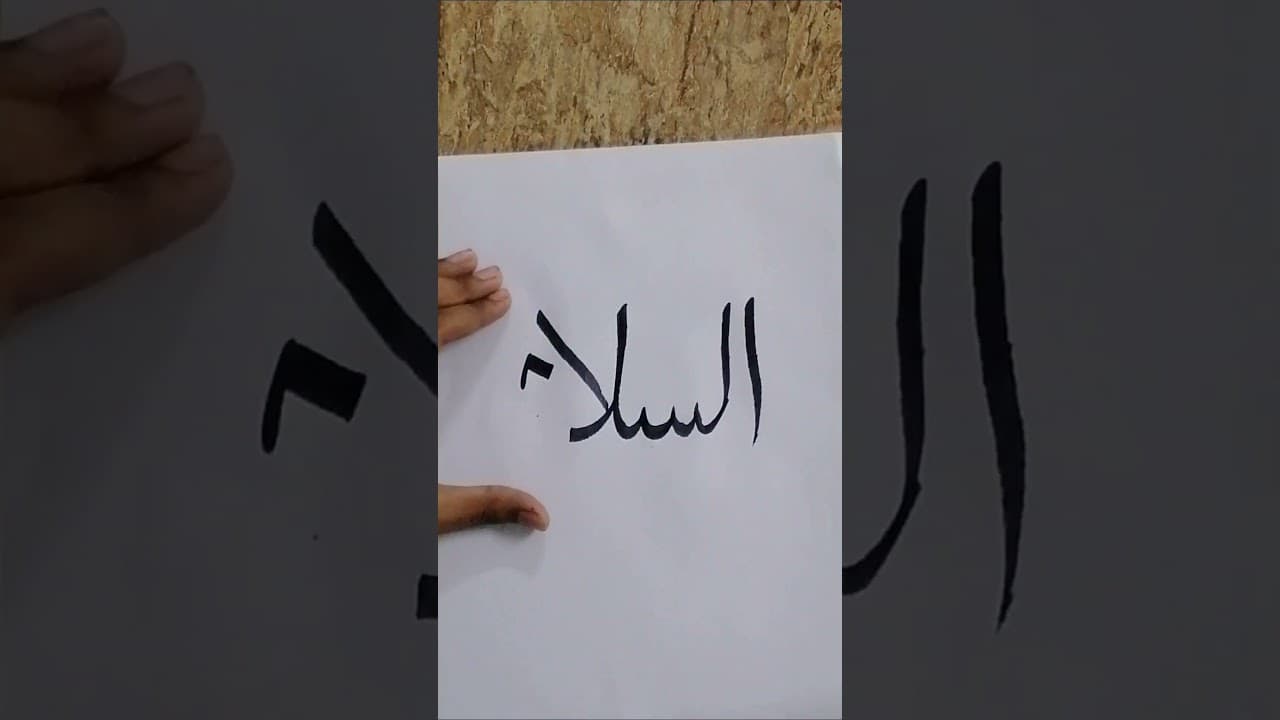 السلا